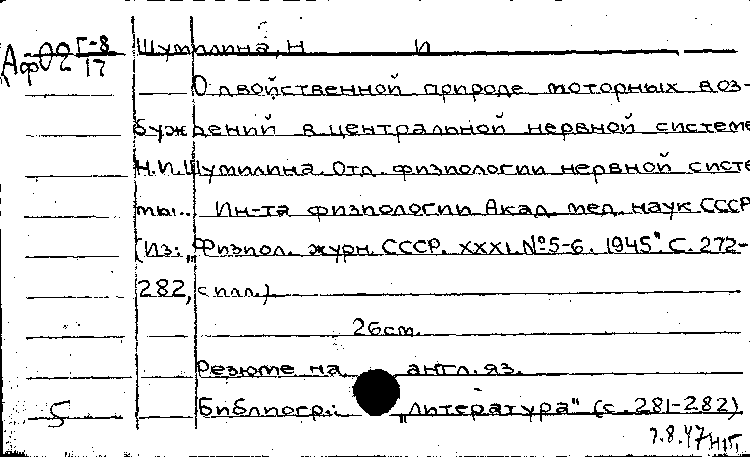 Аф02 Г-8/17 Шумилина, Н. И.
О двойственной природе моторных воз-
буждений в центральной нервной системе
Н.И.Шумилина. Отд. физиологии нервной систе
мы.. Ин-та физиологии Акад. мед. наук СССР
(Из: „Физиол. журн. СССР. XXXI. №5-6. 1945". С. 272-
282, с илл.)
26см.
Резюме на англ. яз.
5 Библиогр.: „Литература" (с. 281-282)
7.8.47